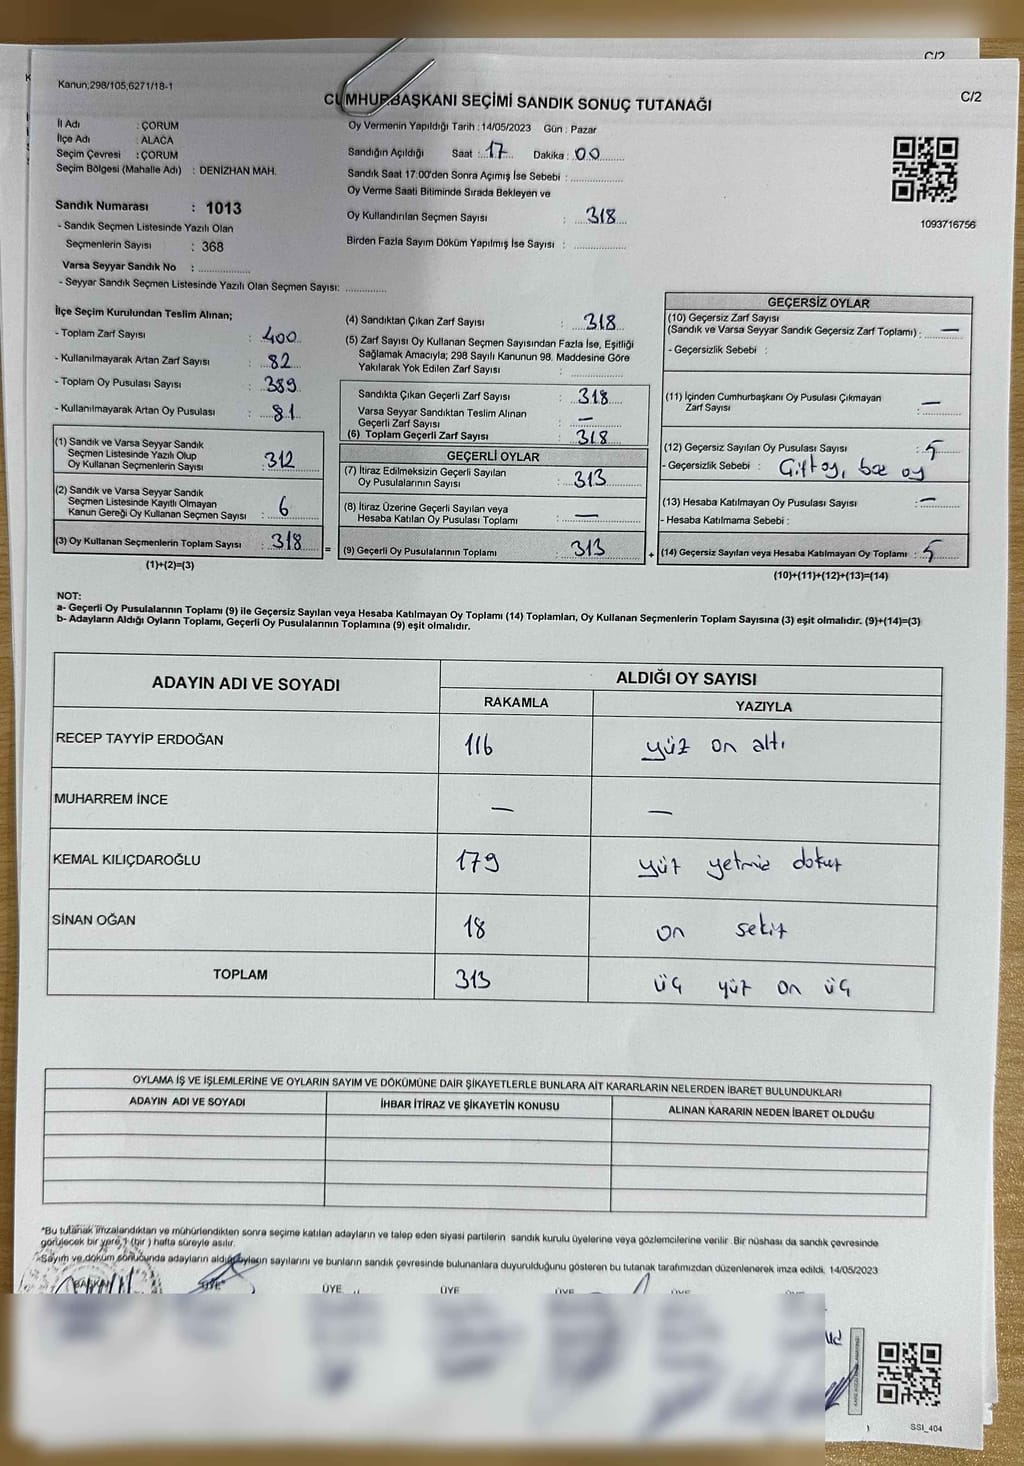 C/2
Kanun;298/105,6271/18-1
CUMHURBAŞKANI SEÇİMİ SANDIK SONUÇ TUTANAĞI
C/2
İl Adı : ÇORUM
İlçe Adı : ALACA
Seçim Çevresi : ÇORUM
Seçim Bölgesi (Mahalle Adı) : DENİZHAN MAH.
Sandık Numarası : 1013
- Sandık Seçmen Listesinde Yazılı Olan
Seçmenlerin Sayısı : 368
Varsa Seyyar Sandık No : ................
- Seyyar Sandık Seçmen Listesinde Yazılı Olan Seçmen Sayısı: ............
Oy Vermenin Yapıldığı Tarih : 14/05/2023 Gün : Pazar
Sandığın Açıldığı Saat : 17 Dakika : 00
Sandık Saat 17:00'den Sonra Açımış İse Sebebi : ................
Oy Verme Saati Bitiminde Sırada Bekleyen ve
Oy Kullandırılan Seçmen Sayısı : 318
Birden Fazla Sayım Döküm Yapılmış İse Sayısı : ................
1093716756
İlçe Seçim Kurulundan Teslim Alınan;
- Toplam Zarf Sayısı : 400
- Kullanılmayarak Artan Zarf Sayısı : 82
- Toplam Oy Pusulası Sayısı : 389
- Kullanılmayarak Artan Oy Pusulası : 81
(1) Sandık ve Varsa Seyyar Sandık
Seçmen Listesinde Yazılı Olup
Oy Kullanan Seçmenlerin Sayısı : 312
(2) Sandık ve Varsa Seyyar Sandık
Seçmen Listesinde Kayıtlı Olmayan
Kanun Gereği Oy Kullanan Seçmen Sayısı : 6
(3) Oy Kullanan Seçmenlerin Toplam Sayısı : 318
(1)+(2)=(3)
(4) Sandıktan Çıkan Zarf Sayısı : 318
(5) Zarf Sayısı Oy Kullanan Seçmen Sayısından Fazla İse, Eşitliği
Sağlamak Amacıyla; 298 Sayılı Kanunun 98. Maddesine Göre
Yakılarak Yok Edilen Zarf Sayısı : ................
Sandıkta Çıkan Geçerli Zarf Sayısı : 318
Varsa Seyyar Sandıktan Teslim Alınan
Geçerli Zarf Sayısı : —
(6) Toplam Geçerli Zarf Sayısı : 318
GEÇERLİ OYLAR
(7) İtiraz Edilmeksizin Geçerli Sayılan
Oy Pusulalarının Sayısı : 313
(8) İtiraz Üzerine Geçerli Sayılan veya
Hesaba Katılan Oy Pusulası Toplamı : —
= (9) Geçerli Oy Pusulalarının Toplamı : 313
GEÇERSİZ OYLAR
(10) Geçersiz Zarf Sayısı
(Sandık ve Varsa Seyyar Sandık Geçersiz Zarf Toplamı) : —
- Geçersizlik Sebebi :
(11) İçinden Cumhurbaşkanı Oy Pusulası Çıkmayan
Zarf Sayısı : —
(12) Geçersiz Sayılan Oy Pusulası Sayısı : 5
- Geçersizlik Sebebi : Çift oy, boş oy
(13) Hesaba Katılmayan Oy Pusulası Sayısı : —
- Hesaba Katılmama Sebebi :
+ (14) Geçersiz Sayılan veya Hesaba Katılmayan Oy Toplamı : 5
(10)+(11)+(12)+(13)=(14)
NOT:
a- Geçerli Oy Pusulalarının Toplamı (9) ile Geçersiz Sayılan veya Hesaba Katılmayan Oy Toplamı (14) Toplamları, Oy Kullanan Seçmenlerin Toplam Sayısına (3) eşit olmalıdır. (9)+(14)=(3)
b- Adayların Aldığı Oyların Toplamı, Geçerli Oy Pusulalarının Toplamına (9) eşit olmalıdır.
ADAYIN ADI VE SOYADI ALDIĞI OY SAYISI
RAKAMLA YAZIYLA
RECEP TAYYİP ERDOĞAN 116 yüz on altı
MUHARREM İNCE — —
KEMAL KILIÇDAROĞLU 179 yüz yetmiş dokuz
SİNAN OĞAN 18 on sekiz
TOPLAM 313 üç yüz on üç
OYLAMA İŞ VE İŞLEMLERİNE VE OYLARIN SAYIM VE DÖKÜMÜNE DAİR ŞİKAYETLERLE BUNLARA AİT KARARLARIN NELERDEN İBARET BULUNDUKLARI
ADAYIN ADI VE SOYADI İHBAR İTİRAZ VE ŞİKAYETİN KONUSU ALINAN KARARIN NEDEN İBARET OLDUĞU
*Bu tutanak imzalandıktan ve mühürlendikten sonra seçime katılan adayların ve talep eden siyasi partilerin sandık kurulu üyelerine veya gözlemcilerine verilir .Bir nüshası da sandık çevresinde
görülecek bir yere 1 (bir ) hafta süreyle asılır.
*Sayım ve döküm sonucunda adayların aldığı oyların sayılarını ve bunların sandık çevresinde bulunanlara duyurulduğunu gösteren bu tutanak tarafımızdan düzenlenerek imza edildi. 14/05/2023
BAŞKAN ÜYE ÜYE ÜYE ÜYE ÜYE
SSİ_404